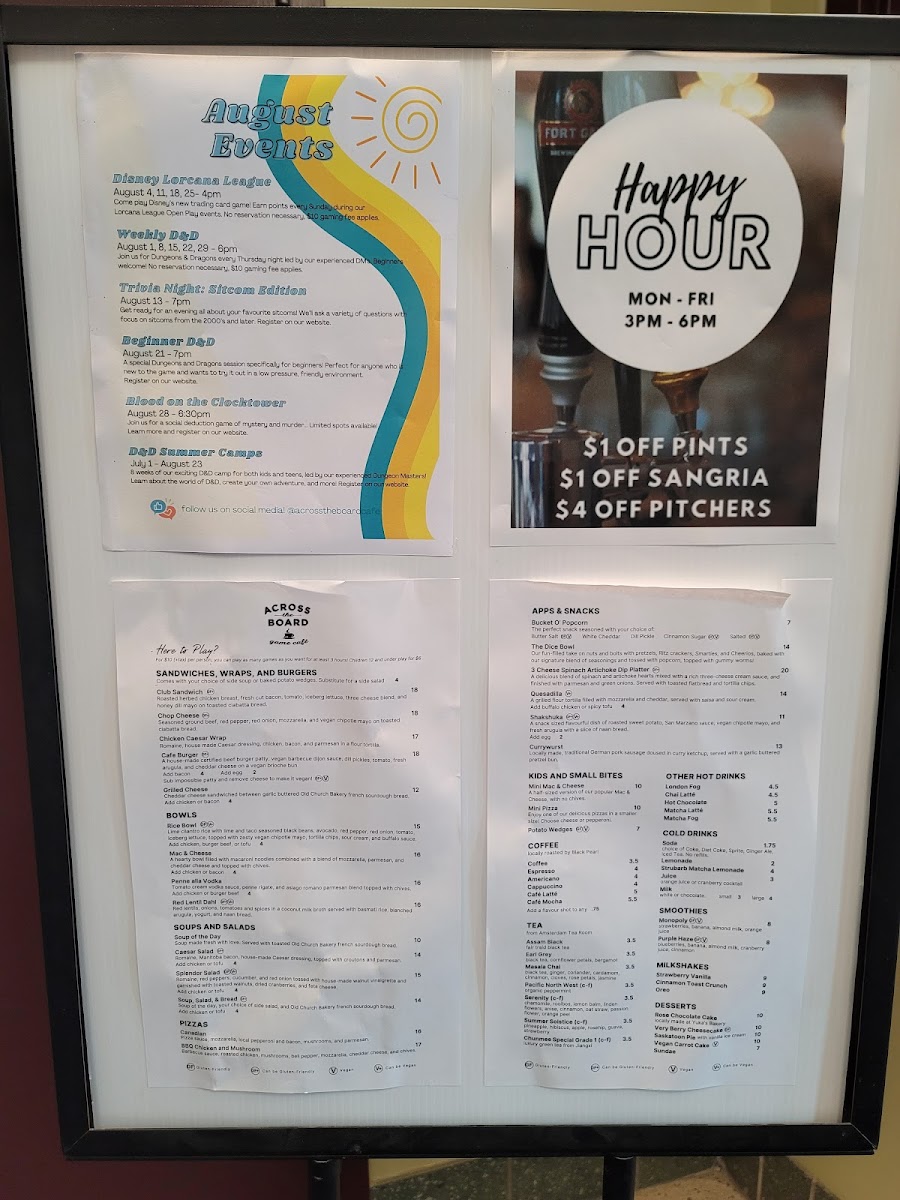 August
Events
Disney Lorcana League
August 4, 11, 18, 25- 4pm
Come play Disney's new trading card game! Earn points every Sunday during our
Lorcana League Open Play events. No reservation necessary, $10 gaming fee applies.
Weekly D&D
August 1, 8, 15, 22, 29 - 6pm
Join us for Dungeons & Dragons every Thursday night led by our experienced DMs. Beginners
welcome! No reservation necessary, $10 gaming fee applies.
Trivia Night: Sitcom Edition
August 13 - 7pm
Get ready for an evening all about your favourite sitcoms! We'll ask a variety of questions with
focus on sitcoms from the 2000's and later. Register on our website.
Beginner D&D
August 21 - 7pm
A special Dungeons and Dragons session specifically for beginners! Perfect for anyone who is
new to the game and wants to try it out in a low pressure, friendly environment.
Register on our website.
Blood on the Clocktower
August 28 - 6:30pm
Join us for a social deduction game of mystery and murder... Limited spots available!
Learn more and register on our website.
D&D Summer Camps
July 1 - August 23
8 weeks of our exciting D&D camp for both kids and teens, led by our experienced Dungeon Masters!
Learn about the world of D&D, create your own adventure, and more! Register on our website.
follow us on social media! @acrosstheboardcafe
FORT
Happy
HOUR
MON - FRI
3PM - 6PM
$1 OFF PINTS
$1 OFF SANGRIA
$4 OFF PITCHERS
ACROSS
the
BOARD
game café
Here to Play?
SANDWICHES, WRAPS, AND BURGERS
Comes with your choice of side soup or baked potato wedges. Substitute for a side salad 4
Club Sandwich 18
Roasted herbed chicken breast, fresh cut bacon, tomato, iceberg lettuce, three cheese blend, and
honey dill mayo on toasted ciabatta bread.
Chop Cheese 18
Seasoned ground beef, red pepper, red onion, mozzarella, and vegan chipotle mayo on toasted
ciabatta bread
Chicken Caesar Wrap 17
Romaine, house made Caesar dressing, chicken, bacon, and parmesan in a flour tortilla.
Cafe Burger 18
A house-made certified beef burger patty, vegan barbecue dijon sauce, dill pickles, tomato, fresh
arugula, and cheddar cheese on a vegan brioche bun
Add bacon 4 Add egg 2
Sub impossible patty and remove cheese to make it vegan!
Grilled Cheese 12
Cheddar cheese sandwiched between garlic buttered Old Church Bakery french sourdough bread.
Add chicken or bacon 4
BOWLS
Rice Bowl 15
Lime cilantro rice with lime and taco seasoned black beans, avocado, red pepper, red onion, tomato,
iceberg lettuce, topped with zesty vegan chipotle mayo, tortilla chips, sour cream, and buffalo sauce.
Add chicken, burger beef, or tofu 4
Mac & Cheese 16
A hearty bowl filled with macaroni noodles combined with a blend of mozzarella, parmesan, and
cheddar cheese and topped with chives.
Add chicken or bacon 4
Penne alla Vodka 16
Tomato cream vodka sauce, penne rigate, and asiago romano parmesan blend topped with chives.
Add chicken or burger beef 4
Red Lentil Dahl 16
Red lentils, onions, tomatoes and spices in a coconut milk broth served with basmati rice, blanched
arugula, yogurt, and naan bread.
SOUPS AND SALADS
Soup of the Day 10
Soup made fresh with love. Served with toasted Old Church Bakery french sourdough bread.
Caesar Salad 14
Romaine, Manitoba bacon, house-made Caesar dressing, topped with croutons and parmesan
Add chicken or tofu 4
Splendor Salad 15
Romaine, red peppers, cucumber, and red onion tossed with house-made walnut vinaigrette and
garnished with toasted walnuts, dried cranberries, and feta cheese
Add chicken or tofu 4
Soup, Salad, & Bread 14
Soup of the day, your choice of side salad, and Old Church Bakery french sourdough bread.
Add chicken or tofu 4
PIZZAS
Canadian 16
Pizza sauce, mozzarella, local pepperoni and bacon, mushrooms, and parmesan.
BBQ Chicken and Mushroom 17
Barbecue sauce, roasted chicken, mushrooms, bell pepper, mozzarella, cheddar cheese, and chives.
Gluten-Friendly Can be Gluten-Friendly Vegan Can be Vegan
APPS & SNACKS
Bucket O' Popcorn 7
The perfect snack seasoned with your choice of:
Butter Salt White Cheddar Dill Pickle Cinnamon Sugar Salted
The Dice Bowl 14
Our fun-filled take on nuts and bolts with pretzels, Ritz crackers, Smarties, and Cheerios, baked with
our signature blend of seasonings and tossed with popcorn, topped with gummy worms!
3 Cheese Spinach Artichoke Dip Platter 20
A delicious blend of spinach and artichoke hearts mixed with a rich three-cheese cream sauce, and
finished with parmesan and green onions. Served with toasted flatbread and tortilla chips.
Quesadilla 14
A grilled flour tortilla filled with mozzarella and cheddar, served with salsa and sour cream.
Add buffalo chicken or spicy tofu 4
Shakshuka 11
A snack sized flavourful dish of roasted sweet potato, San Marzano sauce, vegan chipotle mayo, and
fresh arugula with a slice of naan bread.
Add egg 2
Currywurst 13
Locally made, traditional German pork sausage doused in curry ketchup, served with a garlic buttered
pretzel bun.
KIDS AND SMALL BITES
Mini Mac & Cheese 10
A half-sized version of our popular Mac &
Cheese, with no chives.
Mini Pizza 10
Enjoy one of our delicious pizzas in a smaller
size! Choose cheese or pepperoni.
Potato Wedges 7
COFFEE
locally roasted by Black Pearl
Coffee 3.5
Espresso 4
Americano 4
Cappuccino 4
Café Latté 5
Café Mocha 5.5
Add a flavour shot to any .75
TEA
from Amsterdam Tea Room
Assam Black 3.5
fair trade black tea
Earl Grey 3.5
black tea, cornflower petals, bergamot
Masala Chai 3.5
black tea, ginger, coriander, cardamom,
cinnamon, cloves, rose petals, jasmine
Pacific North West (c-f) 3.5
organic peppermint
Serenity (c-f) 3.5
chamomile, rooibos, lemon balm, linden
flowers, anise, cinnamon, oat straw, passion
flower, orange peel
Summer Solstice (c-f) 3.5
pineapple, hibiscus, apple, rosehip, guava,
strawberry
Chunmee Special Grade 1 (c-f) 3.5
luxury green tea from Jiangxi
OTHER HOT DRINKS
London Fog 4.5
Chai Latté 4.5
Hot Chocolate 5
Matcha Latté 5.5
Matcha Fog 5.5
COLD DRINKS
Soda 1.75
choice of Coke, Diet Coke, Sprite, Ginger Ale,
Iced Tea. No refills.
Lemonade 2
Strubarb Matcha Lemonade 4
Juice 3
orange juice or cranberry cocktail
Milk
white or chocolate small 3 large 4
SMOOTHIES
Monopoly 8
strawberries, banana, almond milk, orange
juice
Purple Haze 8
blueberries, banana, almond milk, cranberry
juice, cinnamon
MILKSHAKES
Strawberry Vanilla 9
Cinnamon Toast Crunch 9
Oreo 9
DESSERTS
Rose Chocolate Cake 10
locally made at Yuka's Bakery
Very Berry Cheesecake 10
Saskatoon Pie with vanilla ice cream 10
Vegan Carrot Cake 10
Sundae 7
Gluten-Friendly Can be Gluten-Friendly Vegan Can be Vegan